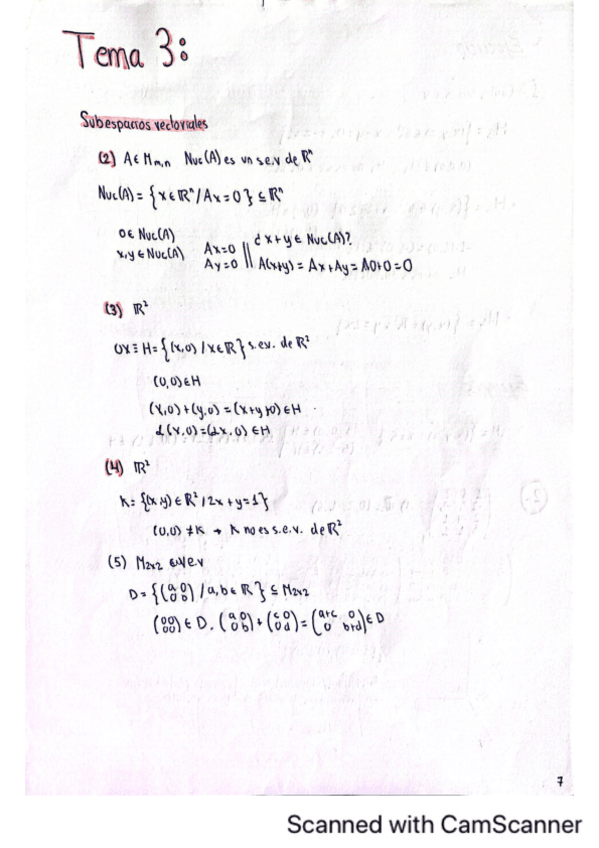 Tema 3:
Subespacios vectoriales
(2) A∈Mm,n Nuc(A) es un s.e.v de ℝⁿ
Nuc(A) = {x∈ℝⁿ/Ax=0} ⊆ ℝⁿ
0∈ Nuc(A)
x,y ∈ Nuc(A)
Ax=0
Ay=0
¿x+y ∈ Nuc(A)?
A(x+y) = Ax+Ay = A0+0=0
(3) ℝ²
OX ≡ H = {(x,0) /x∈ℝ} s.e.v. de ℝ²
(0,0)∈H
(x,0)+(y,0) = (x+y,0)∈H
α(x,0)=(αx,0) ∈H
(4) ℝ²
K= {(x,y)∈ℝ²/2x+y=1}
(0,0) ∉K → K no es s.e.v. de ℝ²
(5) M2x2
D= {(a 0 / 0 b) /a,b∈ℝ} ⊆ M2x2
(0 0 / 0 0) ∈ D. (a 0 / 0 b) + (c 0 / 0 d) = (a+c 0 / 0 b+d) ∈ D
7
Scanned with CamScanner